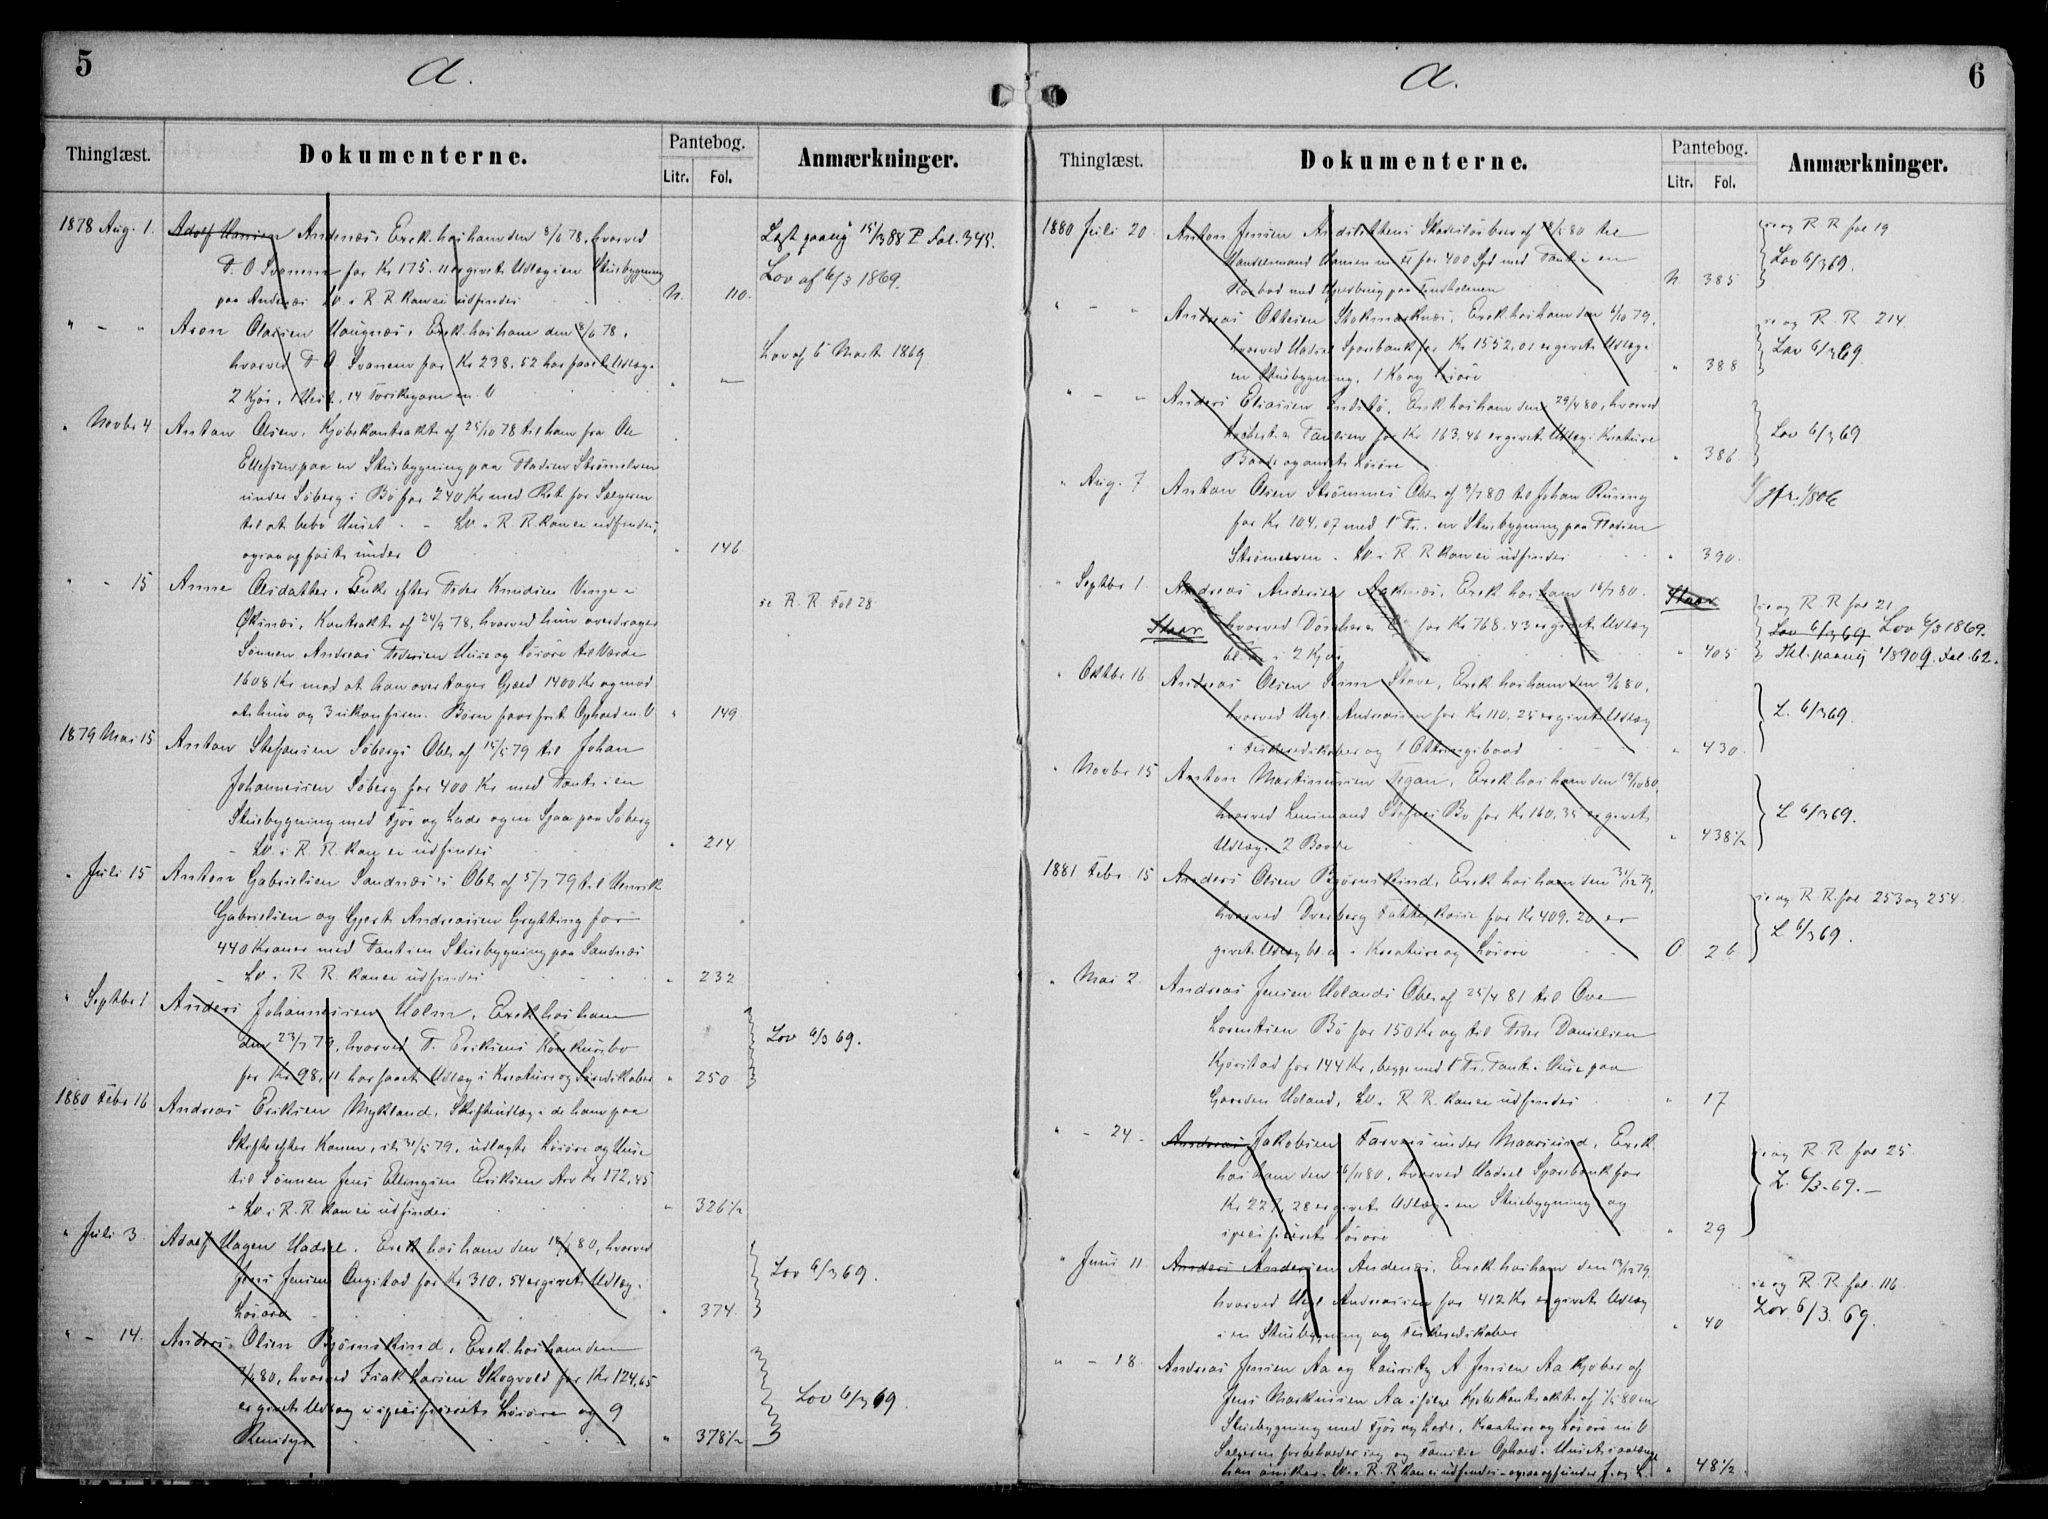 5
A.
Thinglæst.
Dokumenterne.
Pantebog.
Litr.
Fol.
Anmærkninger.
1878 Aug. 1.
Adolf Hansen Andenæs, Exek. hos ham den 8/6 78, hvorved
T. O Svanem for Kr 175.11 er givet Udlæg i en Stuebygning
paa Andenæs Lv. i R. R. kan ei udfindes
N.
110.
Læst paany 15/3 88 P Fol. 345.
Lov af 6/3 1869.
" - "
Aron Olaisen Haugnæs, Exek. hos ham den 8/6 78,
hvorved T. O. Svanem for Kr 238.52 har faaet Udlæg i
2 Kjør, 1 Hest, 14 Torskegarn m. V
"
"
Lov af 6 Marts 1869
" Novbr 4
Anton Olsen, Kjøbekontrakt af 25/10 78 til ham fra Ole
Ellefsen paa en Stuebygning paa Pladsen Strømelven
under Søberg i Bø for 240 Kr med Ret for Sælgeren
til at bebo Huset. - Lv. i R. R. kan ei udfindes,
ogsaa opførte under O
"
146.
" - 15
Anne Olsdatter, Enke efter Peder Knudsen Vinje i
Øksnæs, Kontrakt af 24/9 78, hvorved hun overdrager
Sønnen Andreas Pedersen Huse og Løsøre til Værdi
1608 Kr mod at han overtager Gjæld 1400 Kr og mod
at hun og 3 ukonfirm. Børn faar frit Ophold m. V
"
149.
se R. R Fol 28
1879 Mai 15
Anton Stefansen Søbergs Obl. af 15/5 79 til Johan
Johannessen Søberg for 400 Kr med Pant i en
Stuebygning med Fjøs og Lade og en Sjaa paa Søberg
- Lv. i R. R. kan ei udfindes
"
214
" Juli 15
Anton Gabrielsen Sandnæs's Obl. af 5/7 79 til Henrik
Gabrielsen og Gjert Andreassen Grytting for
440 Kroner med Pant i en Stuebygning paa Sandnæs
- Lv. i R. R. kan ei udfindes
"
232
" Septbr 1
Anders Johannessen Holm, Exek. hos ham
den 23/7 79, hvorved P. Eriksens Konkursbo
for Kr 98,11 har faaet Udlæg i Kreature og Søredskaber
"
250
Lov 6/3 69.
1880 Febr 16
Andreas Eriksen Mykland, Skifteudlæg i de ham paa
Skifte efter Konen, sl. 31/5 79, udlagte Løsøre og Huse
til Sønnen Jens Ellingsen Eriksen Arv Kr 172,45
- Lv. i R. R. kan ei udfindes
"
326 1/2
" Juli 3.
Adolf Hagen Hadsel, Exek. hos ham den 18/5 80, hvorved
Jens Jensen Ongstad for Kr 310,54 er givet Udlæg i
Løsøre
"
374.
Lov 6/3 69.
" - 14.
Anders Olsen Bjørnskind, Exek. hos ham den
7/6 80, hvorved Isak Larsen Skogvold for Kr 124,65
er givet Udlæg i specificeret Løsøre og 9
Rensdyr
"
378 1/2
Lov 6/3 69.
6
A.
Thinglæst.
Dokumenterne.
Pantebog.
Litr.
Fol.
Anmærkninger.
1880 Juli 20
Anton Jensen Skadesløsbrev af 80 til
Handelsmand Hansen for 400 Spd med Pant i en
med
N.
385
se og R R fol 19
Lov 6/3 69.
" - "
Andreas Ottesen Stokmarknæs, Exek. hos ham den 6/10 79,
hvorved Hadsel Sparebank for Kr 1552,01 er givet Udlæg i
en Stuebygning, 1 Ko og Løsøre
"
388
se og R. R. 214.
Lov 6/3 69.
" - "
Anders Eliassen Indstø, Exek. hos ham den 29/4 80, hvorved
Paulsen for Kr 163.46 er givet Udlæg i Kreature
Baade og andet Løsøre
"
386
Lov 6/3 69
" Aug. 7
Anton Olsen Strømmes Obl. af 9/7 80 til Johan Rusing
for Kr 104.07 med 1 Pr. i en Stuebygning paa Pladsen
Strømelven - Lv. i R. R. kan ei udfindes
"
390.
" Septbr 1.
Andreas Andersen Aaknæs, Exek. hos ham 16/7 80.
Staar
hvorved for Kr 768.43 er givet Udlæg
bl. a. i 2 Kjør
Staar
"
405
se og R. R fol 21
Lov 6/3 69 Lov 6/3 1869.
Thl. paany 1/8 90 Q. Fol. 62.
" Oktbr 16
Andreas Olsen Steine Stave, Exek. hos ham den 9/6 80,
hvorved Hegl. Andreassen for Kr 110.25 er givet Udlæg
i Fiskeredskaber og 1 Ottringsbaad
"
430.
L. 6/3 69.
" Novbr 15
Anton Martinussen Tegan, Exek. hos ham den 19/10 80,
hvorved Lensmand Bø for Kr 160.35 er givet
Udlæg i 2 Baade
"
438 1/2
L 6/3 69.
1881 Febr 15
Anders Olsen Bjørnskind, Exek. hos ham den 31/12 79,
hvorved Dverberg Fattigkasse for Kr 409.20 er
givet Udlæg bl. a. i Kreature og Løsøre
O
26
se og R. R. fol 253 og 254.
L 6/3 69.
" Mai 2
Andreas Jensen Holands Obl. af 25/4 81 til Ove
Lorentsen Bø for 150 Kr og til Peder Danielsen
Kjørstad for 144 Kr, begge med 1 Pr. Pant i Huse paa
Gaarden Holand, Lv. i R. R. kan ei udfindes
"
17
" - 24.
Andreas Jakobsen Farvas under Maarsund, Exek.
hos ham den 16/11 80, hvorved Hadsel Sparebank for
Kr 227, 28 er givet Udlæg i en Stuebygning og
specificeret Løsøre
"
29
se og R. R. fol 25
L. 6/3-69.-
" Juni 11.
Anders Andersen Andenæs, Exek. hos ham den 13/12 79.
hvorved Hegl Andreassen for 412 Kr er givet Udlæg
i en Stuebygning og Fiskeredskaber
"
40
se og R. R. fol. 116
Lov 6/3. 69.
" - 18.
Andreas Jensen Aa og Lauritz A Jensen Aa kjøber af
Jens Markussen Aa ifølge Kjøbekontrakt af 80 en
Stuebygning med Fjøs og Lade, Kreature og Løsøre m. V
Sælgeren forbeholder sig og Familie Ophold i Huset saalænge
han ønsker. Lv. i R. R. kan ei udfindes - ogsaa opf. under J. og L.
"
48 1/2